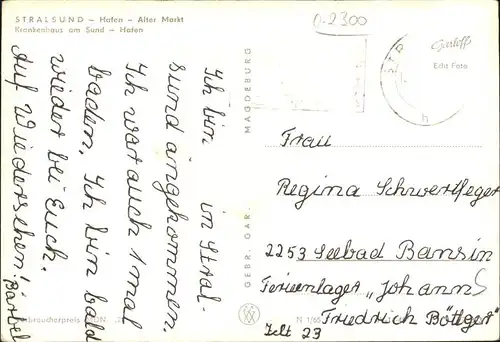 STRALSUND – Hafen – Alter Markt
Krankenhaus am Sund – Hafen
0-2300
Garloff
Edit Foto
Ich bin in Stral-
sund angekommen.
Ich war auch 1 mal
baden. Ich bin bald
wieder bei Euch.
Auf Wiedersehen!
Bärbel
GEBR. GAR. MAGDEBURG
Frau
Regina Schwertfeger
2253 Seebad Bansin
Ferienlager „Johann
Friedrich Böttger"
Zelt 23
N 1/65